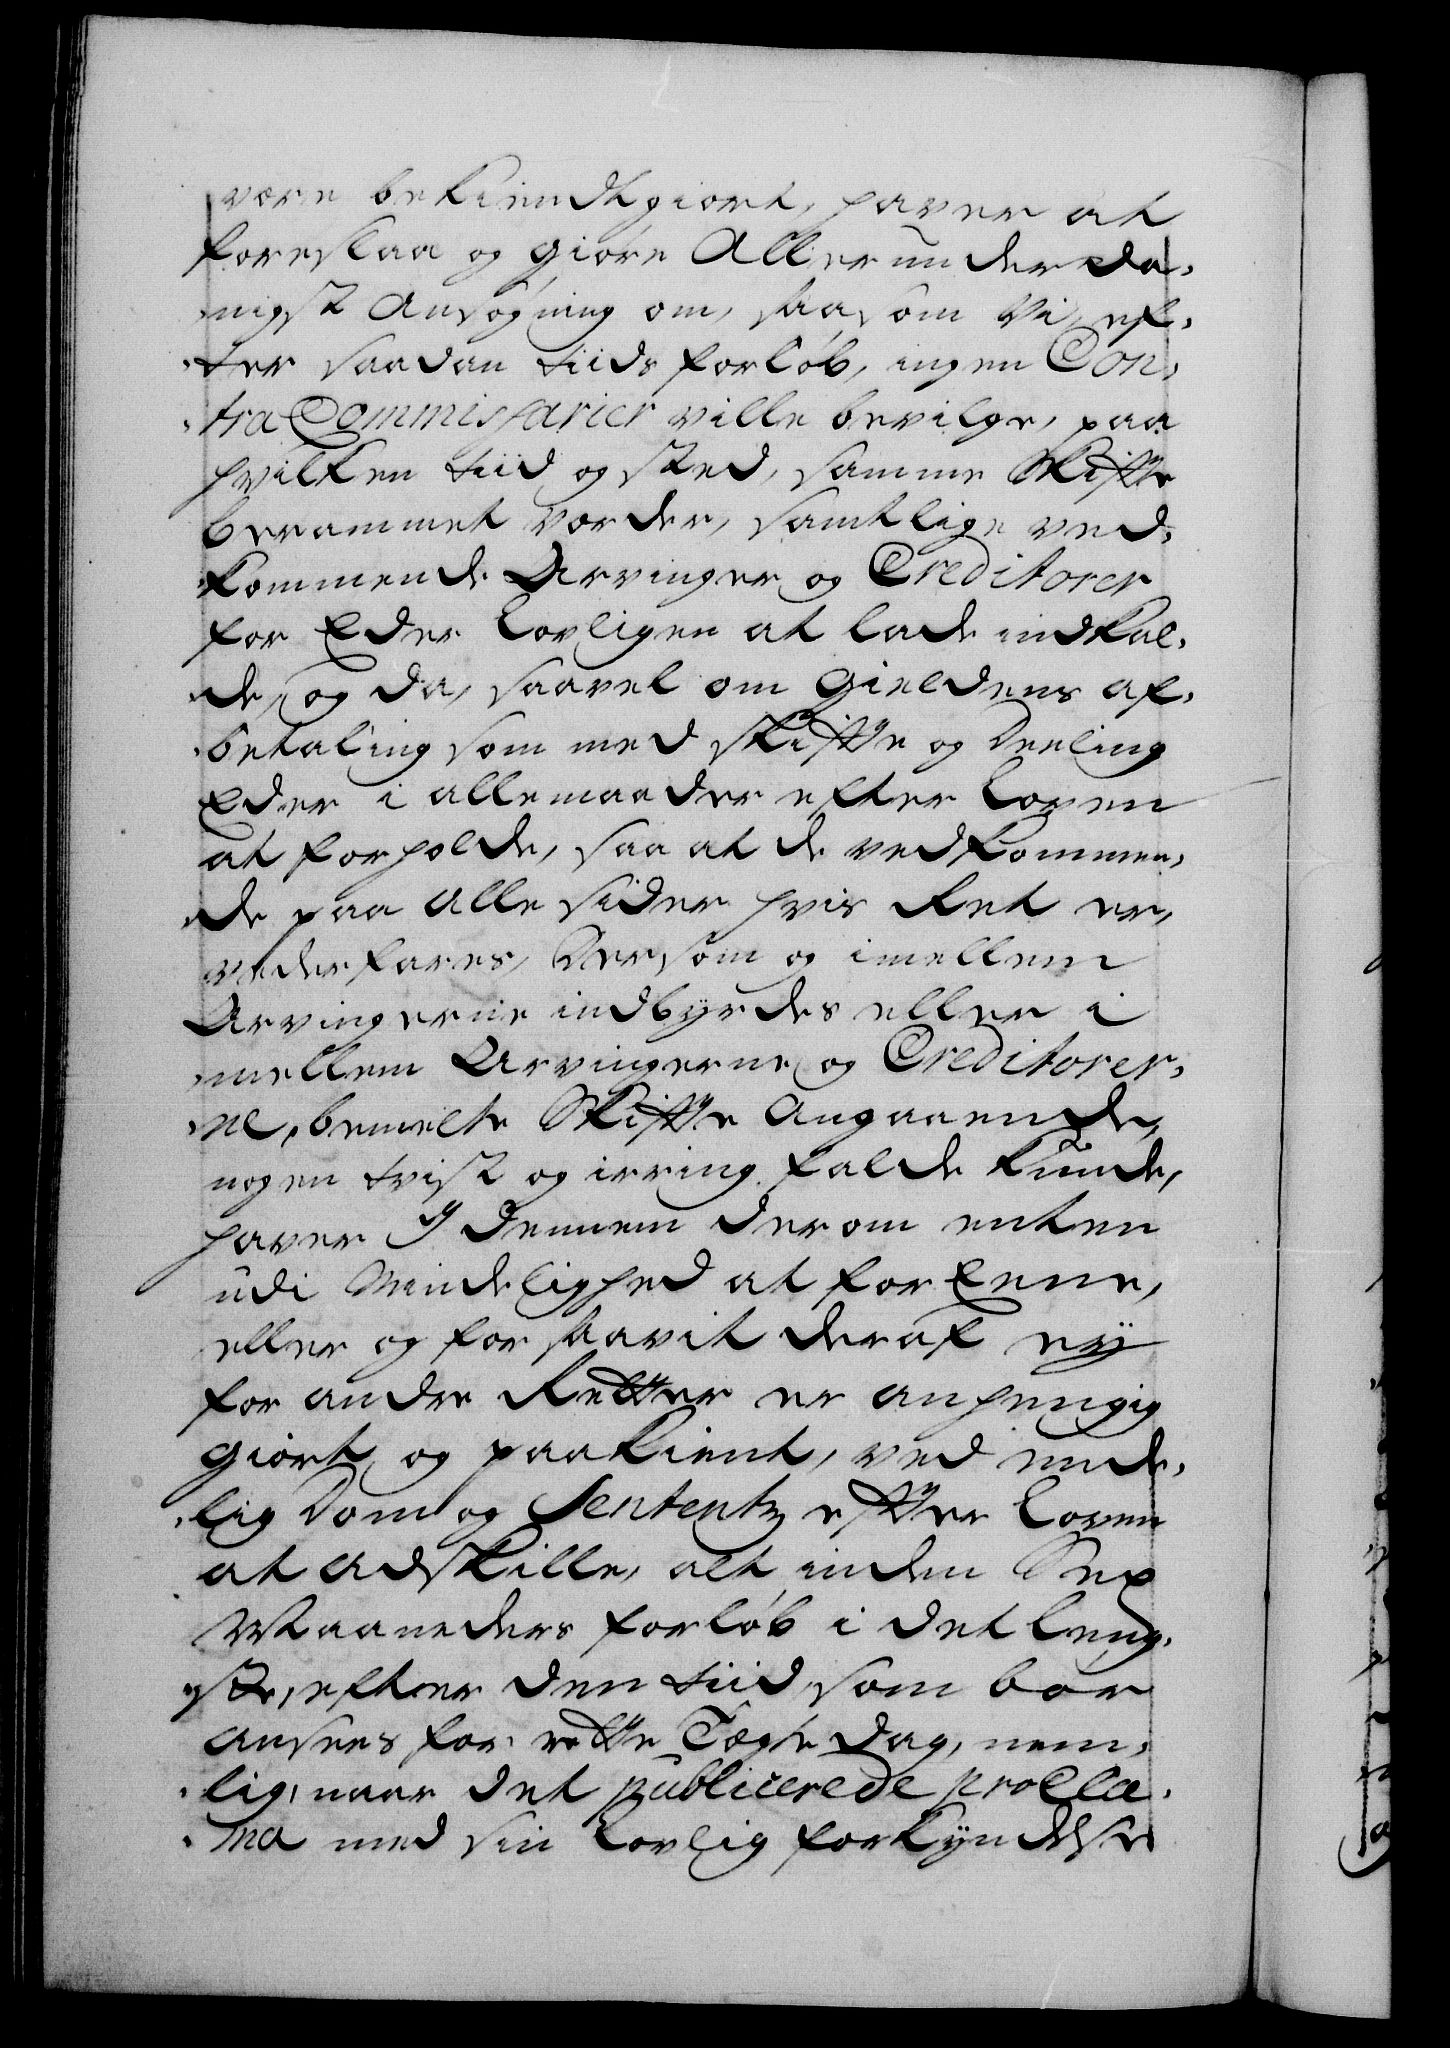 være bekiendtgiort, haver at
foreslaa og giøre Allerunderda-
nigst Ansøgning om, saasom Vi, ef-
ter saadan tiids forløb, ingen Con-
tra Commissarier ville bevilge, paa
hvilken tiid og sted, samme Skifte
berammet vorder, samtlige ved-
kommende Arvinger og Creditorer
for Eder lovligen at lade indkal-
de, og da, saavel om Gieldens af-
betaling som med skifte og Deeling
Eder i allemaader efter Loven
at forholde, saa at de vedkommen-
de paa alle sider hvis Ret er,
vederfares, Dersom og imellem
Arvingerne indbyrdes eller i
mellem Arvingerne og Creditorer-
ne, bemelte Skifte Angaaende,
nogen tvist og irring falde kunde,
haver I dennem derom enten
udi Mindelighed at foreene,
eller og forsaavit deraf ey
for andre Retter er anhengig
giort og paakient, ved ende-
lig Dom og Sententz efter Loven
at adskille, alt inden Sex
Maaneders forløb i det leng-
ste, efter den tiid, som bør
ansees for rette Tægte dag, nem-
lig, naar det publicerede procla-
ma med sin Lovlig forkyndelse